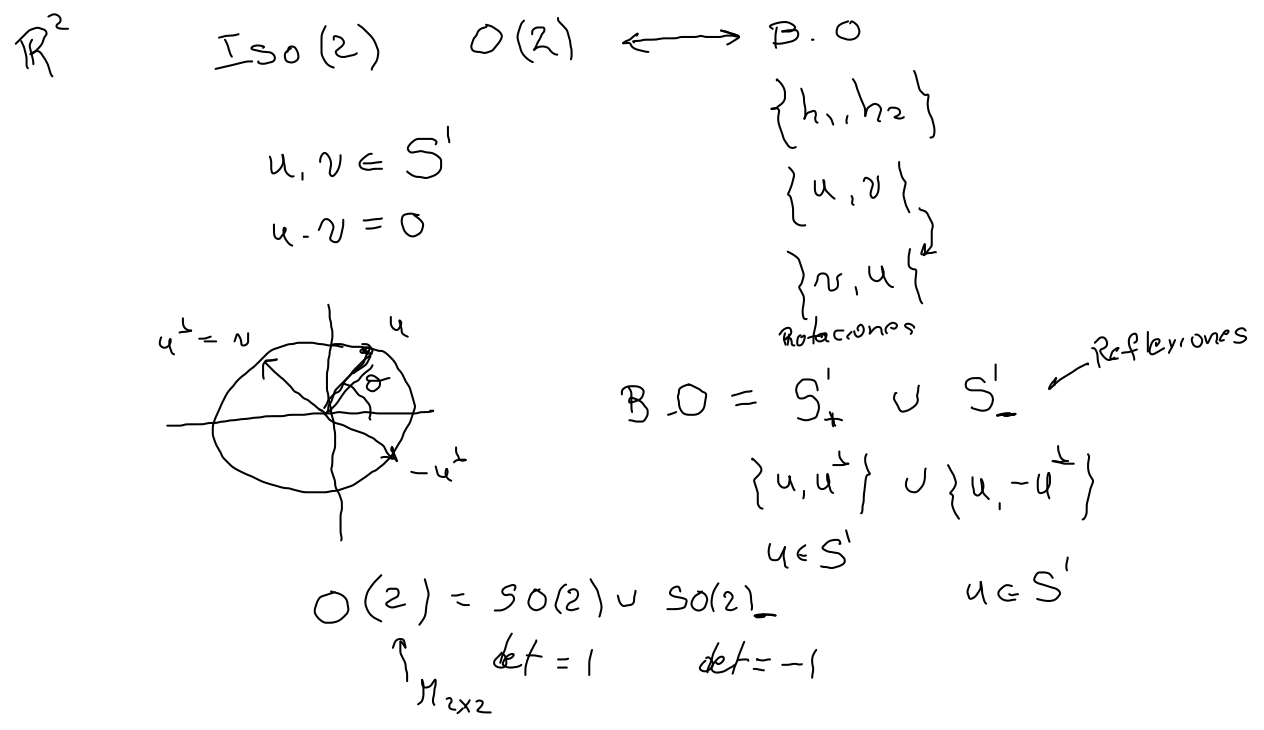 ℝ² Iso(2) O(2) ⟷ B.O
{h₁, h₂}
u, v ∈ S¹
{u, v}
u · v = 0
{v, u}
Rotaciones
Reflexiones
u^⊥ = v u
θ
-u^⊥
B.O = S¹₊ ∪ S¹₋
{u, u^⊥} ∪ {u, -u^⊥}
u ∈ S¹
u ∈ S¹
O(2) = SO(2) ∪ SO(2)₋
det = 1 det = -1
M₂ₓ₂